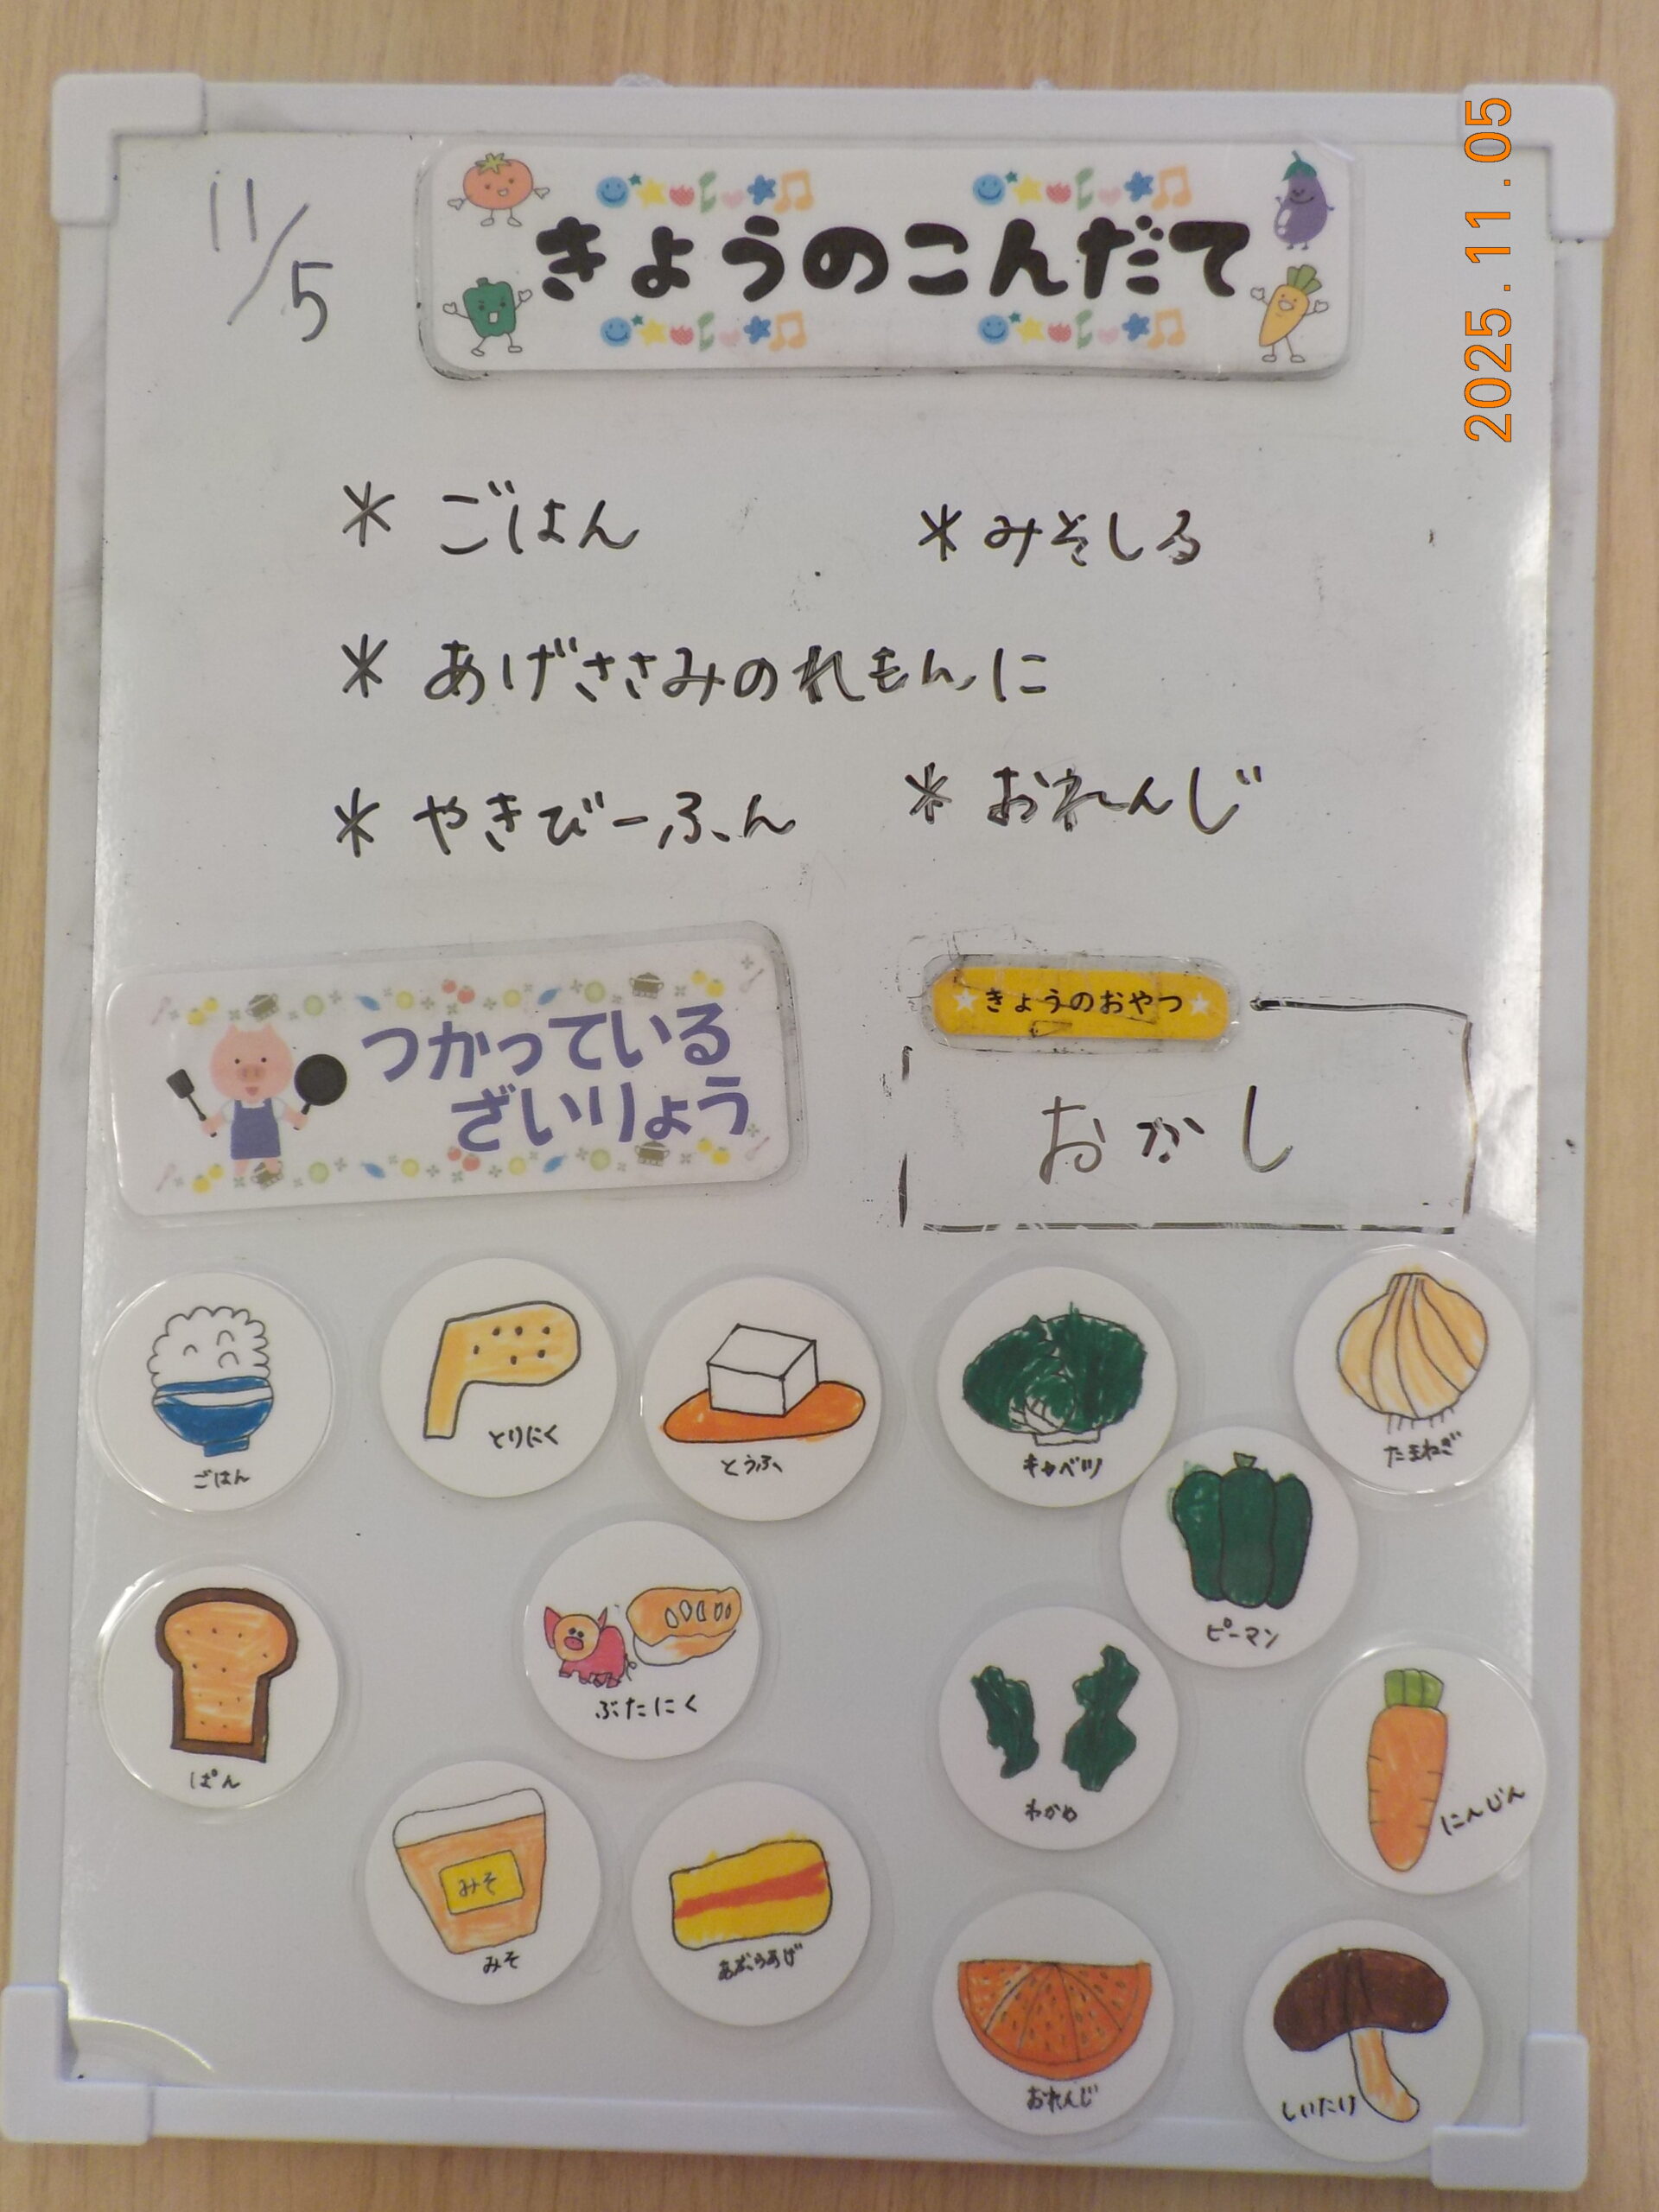 2025.11.05
11/5
きょうのこんだて
* ごはん
* みそしる
* あげささみのれもんに
* やきびーふん
* おれんじ
つかっている
ざいりょう
きょうのおやつ
おかし
ごはん
とりにく
とうふ
キャベツ
たまねぎ
ピーマン
ぱん
ぶたにく
わかめ
にんじん
みそ
みそ
あぶらあげ
おれんじ
しいたけ